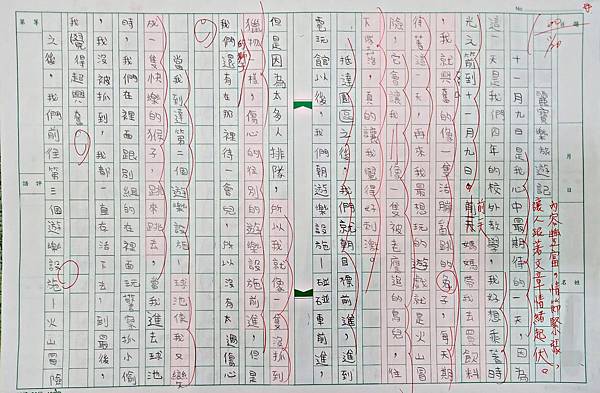 麗寶樂園遊記
十一月九日是我心中最期待的一天，因為
這一天是我們四年的校外教學，我好想乘著時
光之箭到十一月九日。前天媽媽帶我去買飲料
，我就興奮的像一隻活蹦亂跳的兔子，每天期
待著這一天，再來我最想玩的遊戲就是火山冒
險，它會讓我——像一隻被老鷹追的鳥兒，
真的讓我覺得好刺激。
抵達園區之後，我們就朝目標前進，到
電玩館以後，我們朝遊樂設施—碰碰車前進，
但是因為太多人排隊，所以我就像一隻沒抓到
獵物的獅子一樣，傷心的往別的設施前進，但是
我們還有在那裡待一會兒，所以沒有太過傷心
。
當我到達第二個遊樂設施—球池後我又變
成一隻快樂的猴子，跳來跳去，當我進去球池
時，我們在裡面跟別組的一起去玩警察抓小偷
，我沒被抓到，我都一直在裡面，到最後，
我覺得超興奮。
之後，我們前往第三個遊樂設施—火山冒險
內容豐富，情節緊湊，
讓人跟著文章情緒起伏。